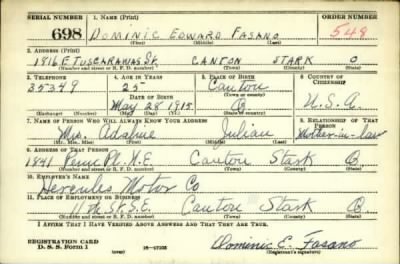 SERIAL NUMBER 1. NAME (Print) ORDER NUMBER
698 DOMINIC EDWARD FASANO 548
(First) (Middle) (Last)
2. ADDRESS (Print)
1816 E TUSCARAWAS St. CANTON STARK O
(Number and street or R. F. D. number) (Town) (County) (State)
3. TELEPHONE 4. AGE IN YEARS 5. PLACE OF BIRTH 6. COUNTRY OF CITIZENSHIP
35349 25 Canton
DATE OF BIRTH (Town or county)
May 28 1915 O U.S.A.
(Mo.) (Day) (Yr.) (State or country)
7. NAME OF PERSON WHO WILL ALWAYS KNOW YOUR ADDRESS 8. RELATIONSHIP OF THAT PERSON
Mrs. Julian Mother-in-law
(Mr., Mrs., Miss) (First) (Middle) (Last)
9. ADDRESS OF THAT PERSON
1841 Penn Pl. N.E. Canton Stark O.
(Number and street or R. F. D. number) (Town) (County) (State)
10. EMPLOYER'S NAME
Hercules Motor Co
11. PLACE OF EMPLOYMENT OR BUSINESS
11th St. S.E. Canton Stark O.
(Number and street or R. F. D. number) (Town) (County) (State)
I AFFIRM THAT I HAVE VERIFIED ABOVE ANSWERS AND THAT THEY ARE TRUE.
REGISTRATION CARD
D. S. S. Form 1 16-17105 Dominic E. Fasano
(Registrant's signature)